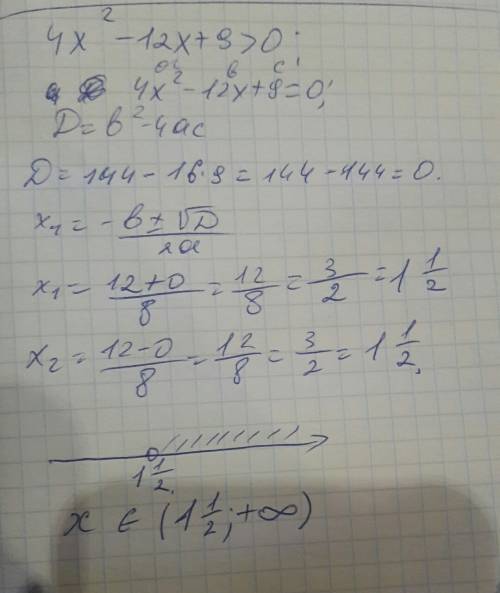 4x² - 12x + 9 > 0;
a в c
4x² - 12x + 9 = 0;
D = в² - 4ac
D = 144 - 16·9 = 144 - 144 = 0.
x₁ = -в ± √D / 2a
x₁ = 12+0 / 8 = 12/8 = 3/2 = 1 1/2
x₂ = 12-0 / 8 = 12/8 = 3/2 = 1 1/2,
1 1/2
x ∈ (1 1/2; +∞)